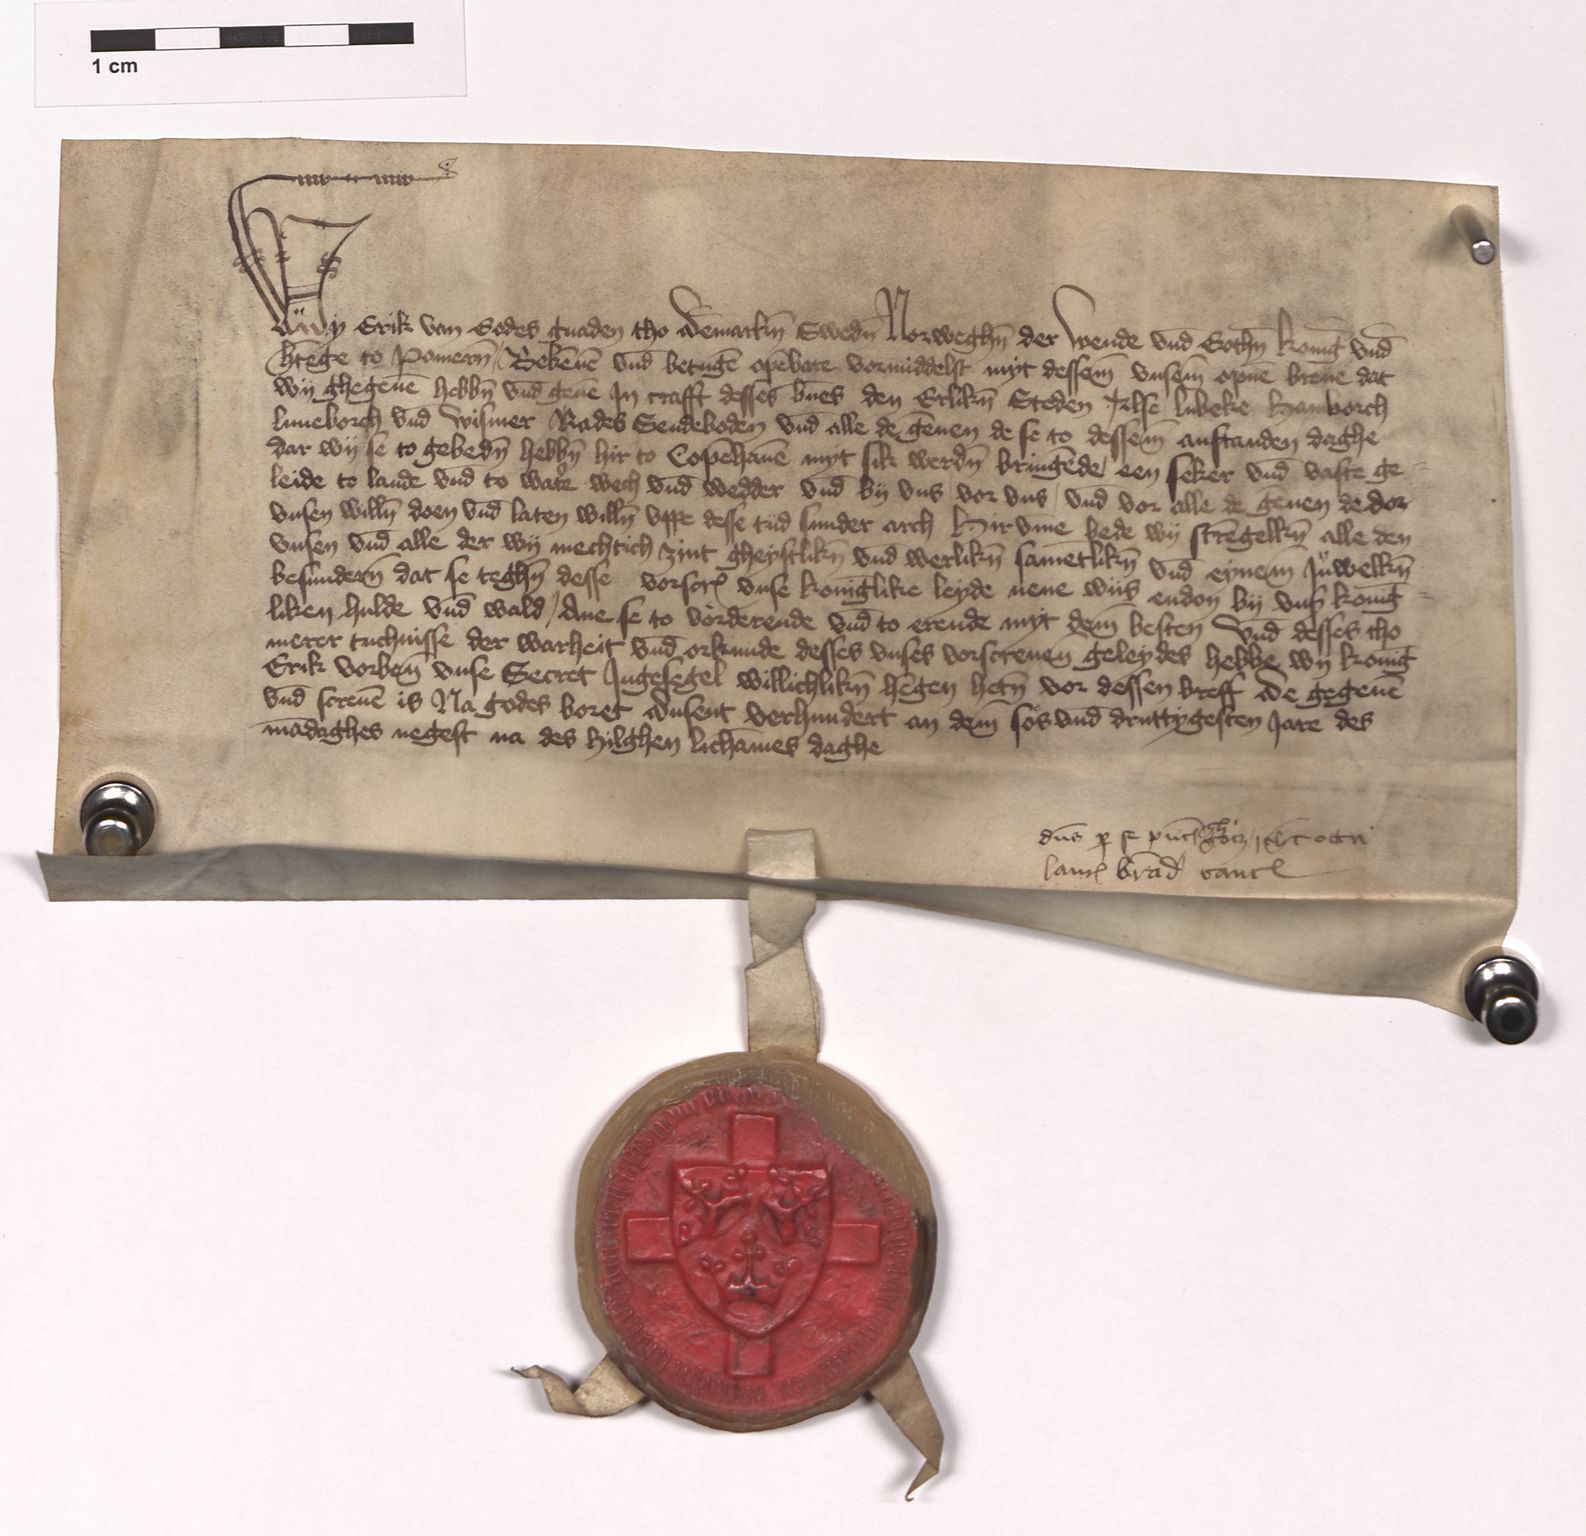 1 cm
Wy Erik van Godes gnaden tho Dēmarkn̄ Swedn̄ Norweghn̄ der Wende vnd̄ Gothn̄ konīg vnd̄
htēge to Pomern̄ / Bekēnē vnd betugē opēbare vormiddelst myt dessem̄ vnsem̄ opne breue dat
wij ghegeuē hebbn̄ vnd̄ geuē In crafft desses būes den Erlikn̄ Steden Alse lubeke Hamborch
luneborch vnd̄ Wismer Rades Sendeboden vnd̄ alle de gēuen de se to dessem̄ anstanden daghe
dar wij se to gebedn̄ hebbn̄ hir to Copēhauē myt sik werdn̄ bringēde / een seker vnd̄ vaste ge-
leide to lande vnd̄ to water wech vnd̄ wedder vnd̄ bij vns / vor vns / vnd̄ vor alle de gēuen de dor
vnsen willn̄ doen vnd̄ laten willn̄ vppe desse tijd sunder arch Hir vme bede wij strēgelkn̄ alle den
vnsen vnd̄ alle der wij mechtich zint gheystlikn̄ vnd̄ werlikn̄ sametlikn̄ vnd̄ eynem̄ Juwelkn̄
besundern̄ dat se teghn̄ desse vorscr̄ vnse konīglike leyde nene wijs endon bij vns̄ konīg-
liken hulde vnd̄ wald / Ane se to vorderende vnd̄ to erende myt dem̄ besten Vnd̄ desses tho
merer tuchnisse der warheit vnd̄ orkunde desses vnses vorscreuen geleydes hebbe wij konīg
Erik vorben̄ vnse Secret Ingesegel willichlikn̄ hēgen hetn̄ vor dessen breff De gegeuē
vnd̄ screuē is Na godes boret dusent verhundert an dem̄ sos vnd̄ druttygesten Jare des
mādaghes negest na des hilghen lichāmes daghe
dn̄s ꝑ se
laur̄ brād canc̄